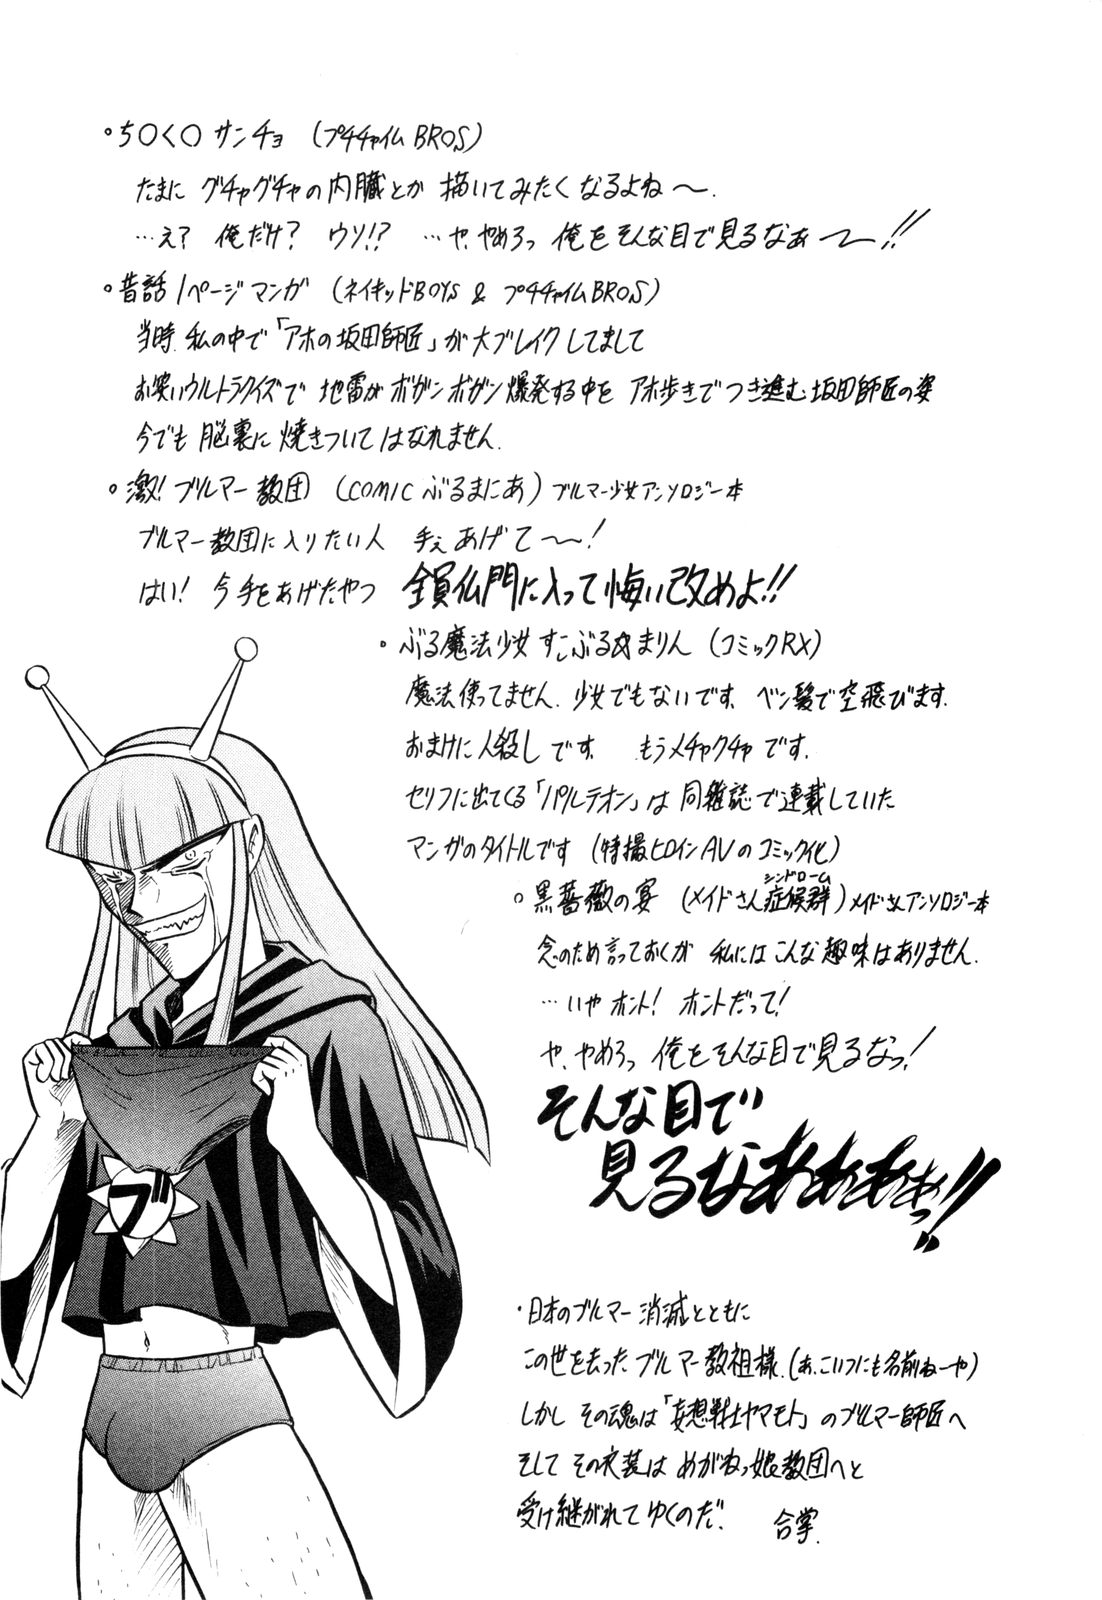 ・ち○く○サンチョ (プチチャイムBROS)
たまに グチャグチャの内臓とか 描いてみたくなるよね〜.
…え? 俺だけ? ウソ!? …や、やめろっ 俺をそんな目で見るなぁ〜!!
・昔話1ページマンガ (ネイキッドBOYS & プチチャイムBROS)
当時 私の中で「アホの坂田師匠」が大ブレイクしてまして
お笑いウルトラクイズで 地雷がボガンボガン爆発する中を アホ歩きでつき進む坂田師匠の姿
今でも 脳裏に焼きついてはなれません.
・激!ブルマー教団 (COMIC ぶるまにあ) ブルマー少女アンソロジー本
ブルマー教団に入りたい人 手ぇあげて〜!
はい! 今手をあげたやつ 全員仏門に入って悔い改めよ!!
・ぶる魔法少女 すこぶる☆まりん (コミックRX)
魔法使ってません. 少女でもないです. ベン髪で空飛びます.
おまけに人殺しです. もうメチャクチャです.
セリフに出てくる「パルテオン」は同雑誌で連載していた
マンガのタイトルです (特撮ヒロインAVのコミック化)
・黒薔薇の宴 (メイドさん症候群) メイドさんアンソロジー本
シンドローム
念のため言っておくが 私にはこんな趣味はありません.
…いやホント! ホントだって!
や、やめろっ 俺をそんな目で見るなっ!
そんな目で
見るなあぁあぁぁっ!!
ブ
・日本のブルマー消滅とともに
この世を去ったブルマー教祖様.(あ、こいつにも名前ねーや)
しかし その魂は「妄想戦士ヤマモト」のブルマー師匠へ
そして その衣装は めがねっ娘教団へと
受け継がれてゆくのだ. 合掌.